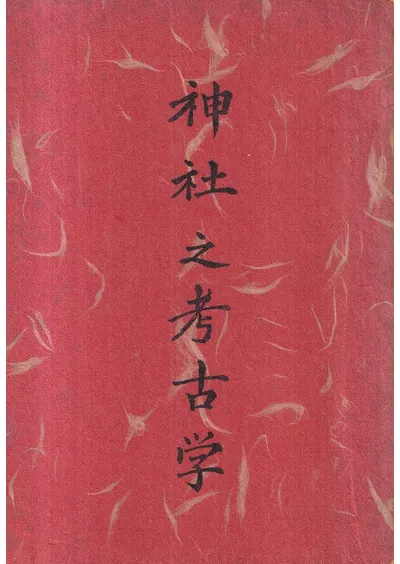 神社之考古学